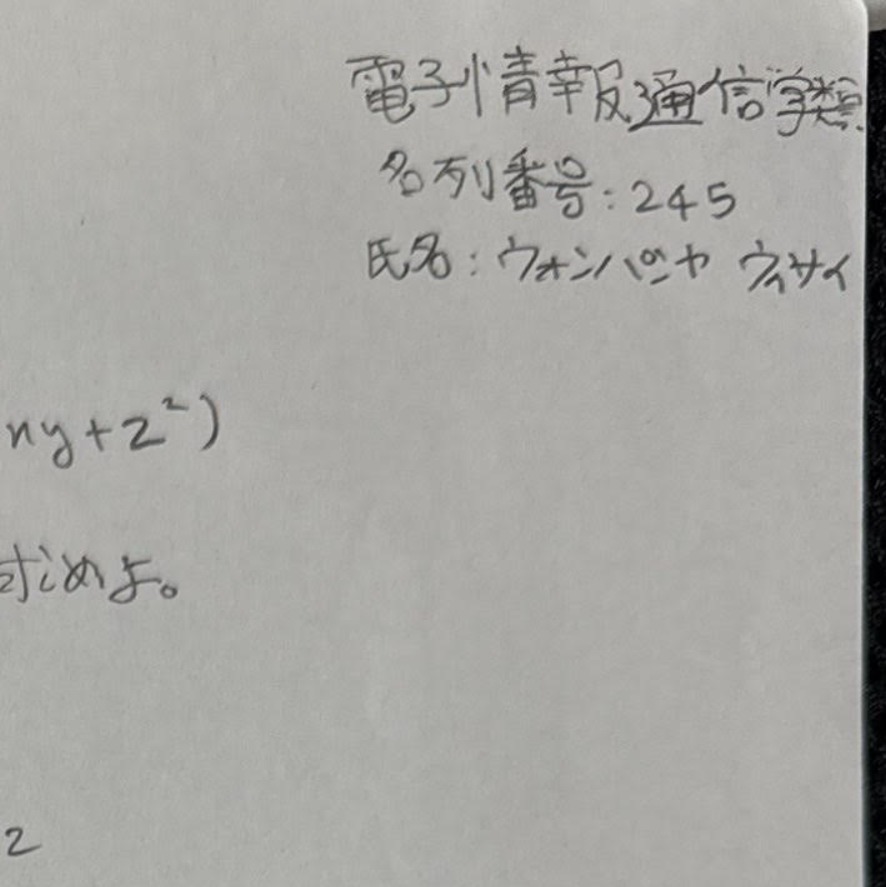 電子情報通信学類
名列番号:245
氏名:ウォンパンヤ ウィサイ
xy+z²)
求めよ。
2